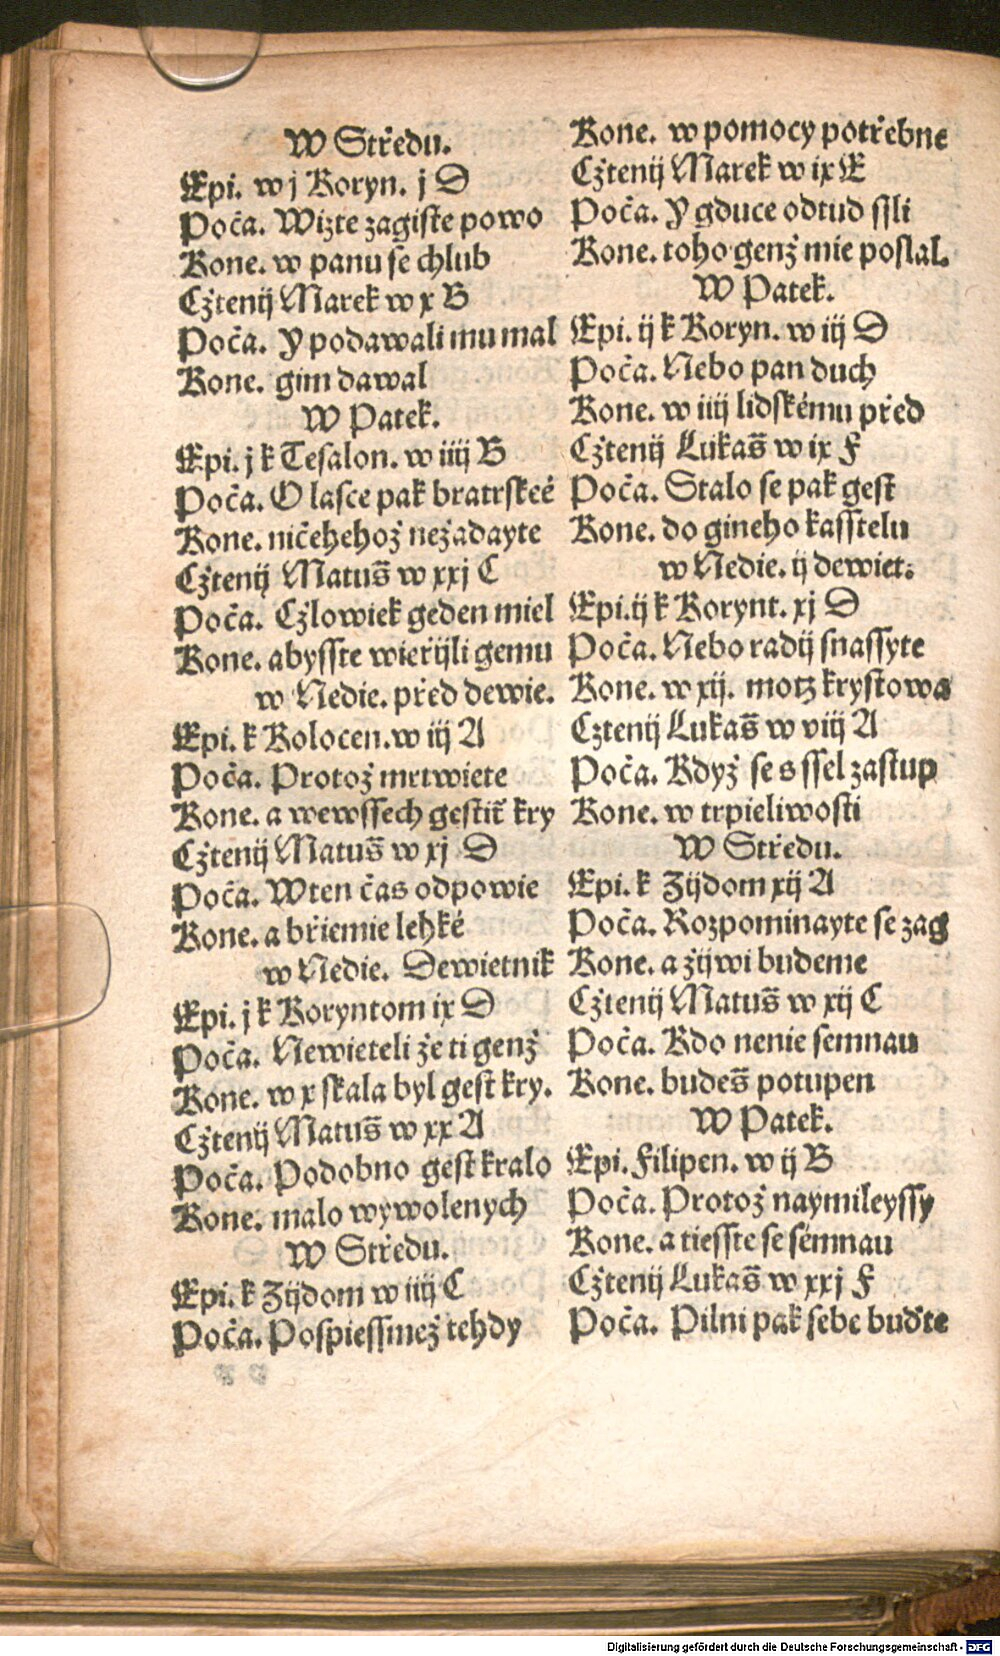 W Středu.
Epi. w j Koryn. j D
Poča. Wizte zagiste powo
Kone. w panu se chlub
Cžtenij Marek w x B
Poča. Y podawali mu mal
Kone. gim dawal
W Patek.
Epi. j k Tesalon. w iiij B
Poča. O lasce pak bratrskeé
Kone. ničehehož nežadayte
Cžtenij Matuš w xxj C
Poča. Cžlowiek geden miel
Kone. abysste wieřijli gemu
w Nedie. před dewie.
Epi. k Kolocen. w iij A
Poča. Protož mrtwiete
Kone. a wewssech gestiť kry
Cžtenij Matuš w xj D
Poča. Wten čas odpowie
Kone. a břiemie lehké
w Nedie. Dewietnik
Epi. j k Koryntom ix D
Poča. Newieteli že ti genž
Kone. w x skala byl gest kry.
Cžtenij Matuš w xx A
Poča. Podobno gest kralo
Kone. malo wywolenych
W Středu.
Epi. k Zijdom w iiij C
Poča. Pospiessmež tehdy
Kone. w pomocy potřebne
Cžtenij Marek w ix E
Poča. Y gduce odtud ssli
Kone. toho genž mie poslal.
W Patek.
Epi. ij k Koryn. w iij D
Poča. Nebo pan duch
Kone. w iiij lidskému před
Cžtenij Lukaš w ix F
Poča. Stalo se pak gest
Kone. do gineho kasstelu
w Nedie. ij dewiet.
Epi. ij k Korynt. xj D
Poča. Nebo radij snassyte
Kone. w xij. motz krystowa
Cztenij Lukaš w viij A
Poča. Když se s ssel zastup
Kone. w trpieliwosti
W Středu.
Epi. k Zijdom xij A
Poča. Rozpominayte se zag
Kone. a žijwi budeme
Cžtenij Matuš w xij C
Poča. Kdo nenie semnau
Kone. budeš potupen
W Patek.
Epi. Filipen. w ij B
Poča. Protož naymileyssy
Kone. a tiesste se sémnau
Cžtenij Lukaš w xxj F
Poča. Pilni pak sebe buďte
Digitalisierung gefördert durch die Deutsche Forschungsgemeinschaft - DFG